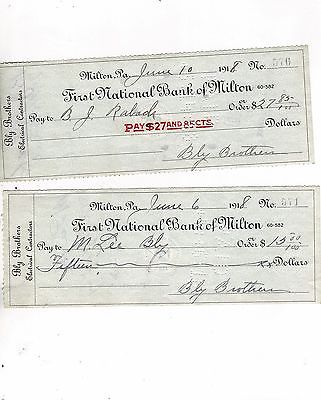 Milton, Pa. June 10 1918 No. 576
First National Bank of Milton 60-592
Pay to B J Order $27 85/100
PAY $27 AND 85 CTS. Dollars
Bly Brothers
Electrical Contractors
Bly Brothers
Milton, Pa. June 6 1918 No. 571
First National Bank of Milton 60-592
Pay to M. Lee Bly Order $15 00/100
Fifteen xx Dollars
Bly Brothers
Electrical Contractors
Bly Brothers